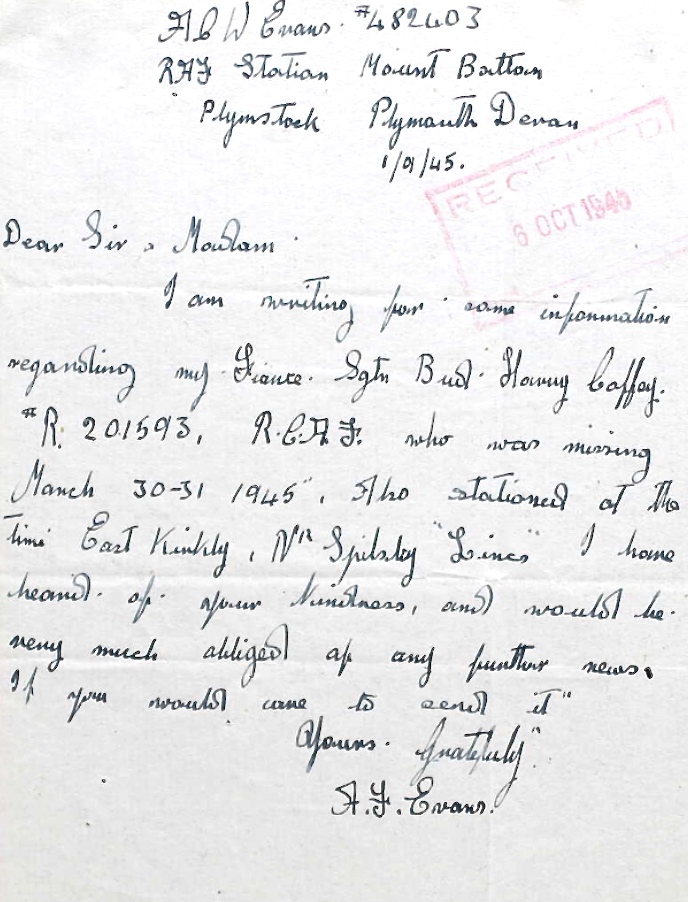 A C W Evans. #482403
RAF Station Mount Batton
Plymstock Plymouth Devon
1/9/45.
RECEIVED
6 OCT 1945
Dear Sir, Madam.
I am writing for some information
regarding my Fiance. Sgtn Bud Harry Coffey.
#R. 201593, R.C.A.F. who was missing
March 30-31 1945", Also stationed at the
time East Kirkly, Nr Spilsby "Lincs" I have
heard of your kindness, and would be
very much obliged of any further news.
If you would care to send it"
Yours. Gratefuly"
A.F. Evans.